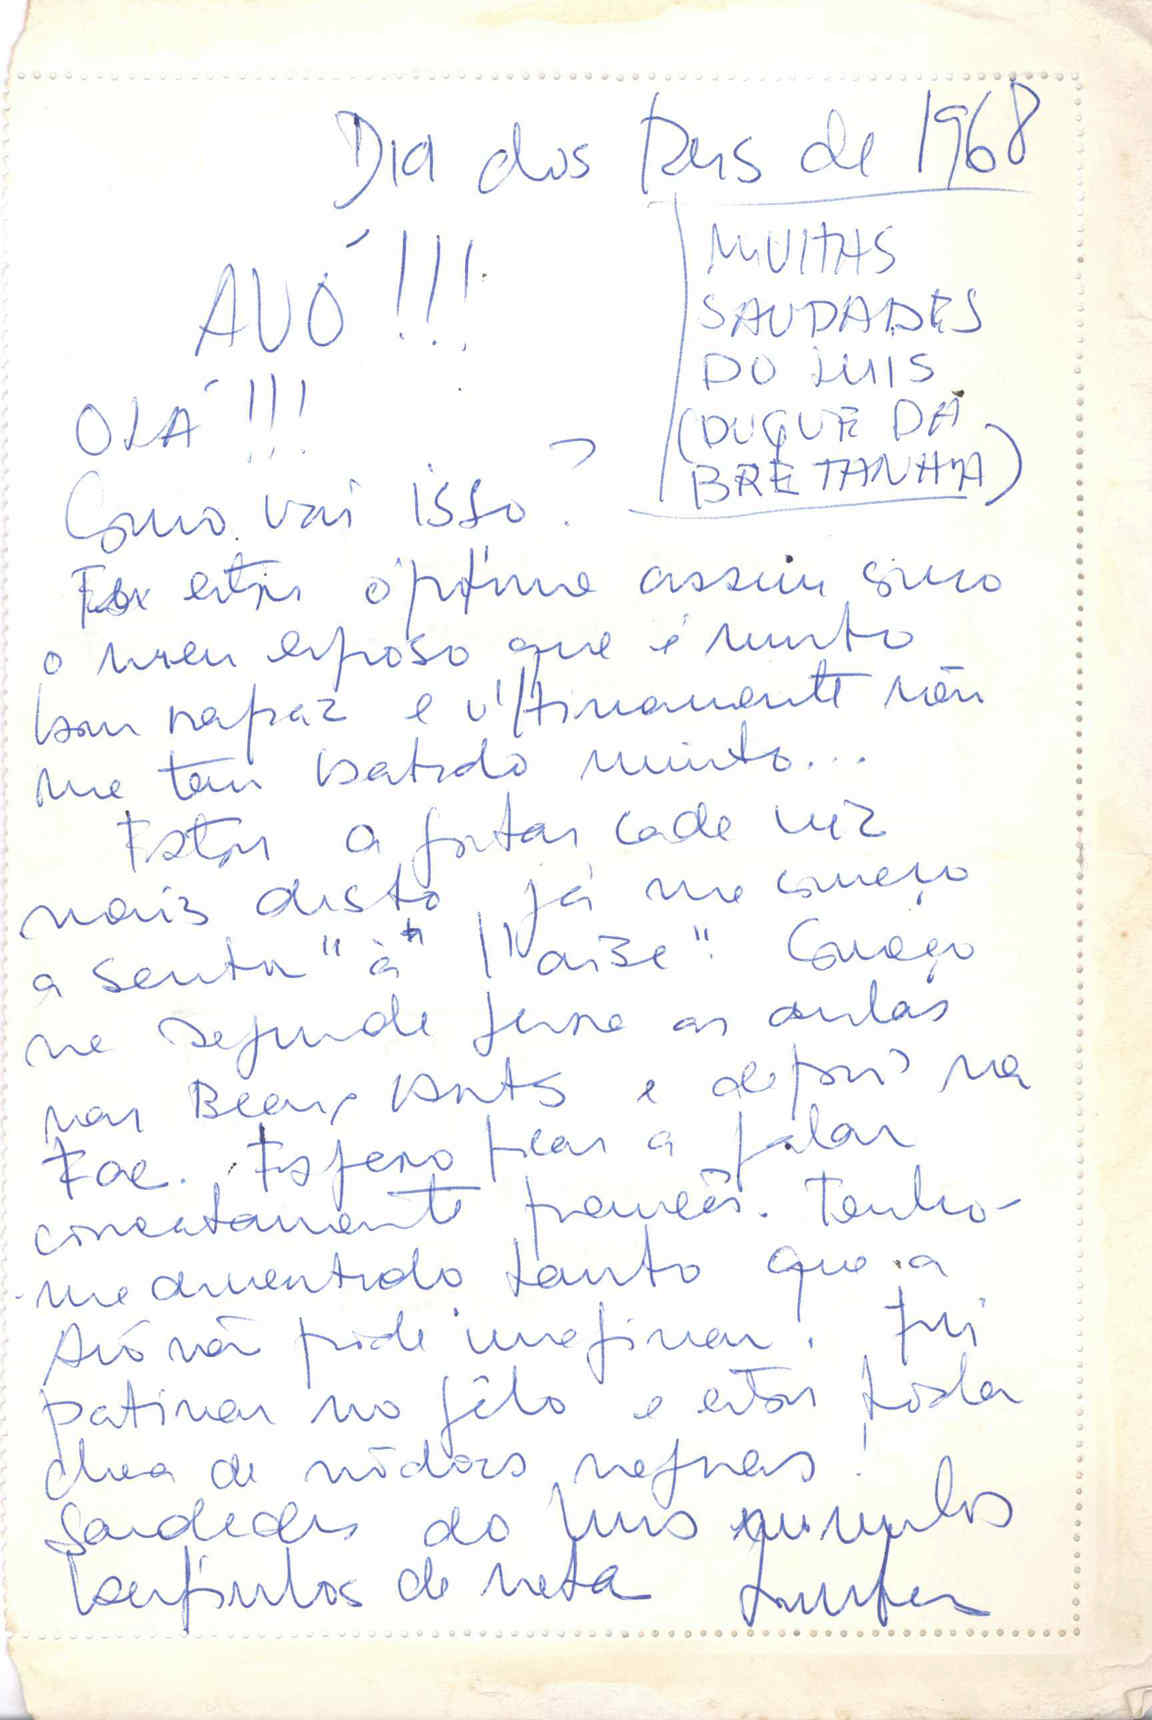 Dia dos Reis de 1968
AVÓ!!!
MUITAS
SAUDADES
DO LUIS
(DUQUE DA
BRETANHA)
OLÁ!!!
Como vai isso?
Eu estou óptima assim como
o meu esposo que é muito
bom rapaz e últimamente não
me tem batido muito...
Estou a gostar cada vez
mais disto já me começo
a sentir "à l'aise". Começo
na segunda feira as aulas
nas Beaux Arts e depois na
Fac. Espero ficar a falar
correctamente francês. Tenho-
-me divertido tanto que a
Avó não pode imaginar. Fui
patinar no gêlo e estou tôda
cheia de nódoas negras!
Saudades do Luis muitos
beijinhos da neta